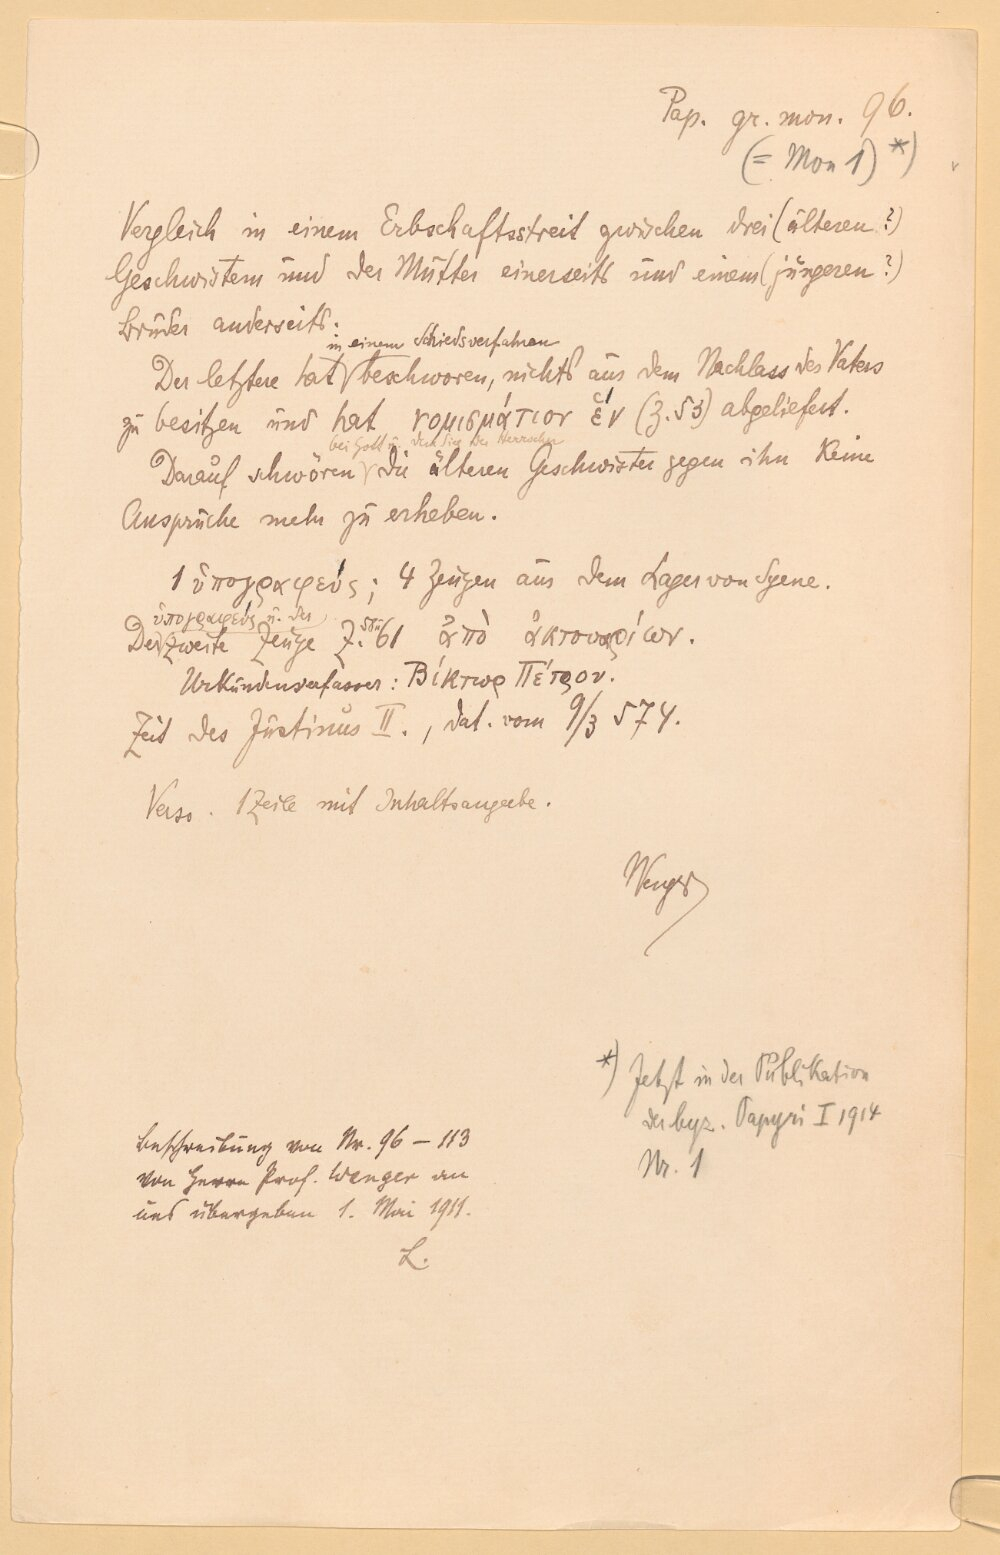 Pap. gr. mon. 96.
(= Mon 1) *)
Vergleich in einem Erbschaftsstreit zwischen drei (älteren?)
Geschwistern und der Mutter einerseits und einem (jüngeren?)
Bruder anderseits:
in einem Schiedsverfahren
Der letztere hat beschworen, nichts aus dem Nachlass des Vaters
zu besitzen und hat νομισμάτιον ἕν (Z. 53) abgeliefert.
bei Gott u. dem Sieg der Herrscher
Darauf schwören die älteren Geschwister gegen ihn keine
Ansprüche mehr zu erheben.
1 ὑπογραφεύς; 4 Zeugen aus dem Lager von Syene.
ὑπογραφεύς u. der
Der zweite Zeuge Z. 61 ἀπὸ ἀκτουαρίων.
Urkundenverfasser: Βίκτωρ Πέτρου.
Zeit des Justinus II., dat. vom 9/3 574.
Verso. 1 Zeile mit Inhaltsangabe.
Wenger
*) Jetzt in der Publikation
der byz. Papyri I 1914
Nr. 1
Beschreibung von Nr. 96 – 113
von Herrn Prof. Wenger an
uns übergeben 1. Mai 1911.
L.